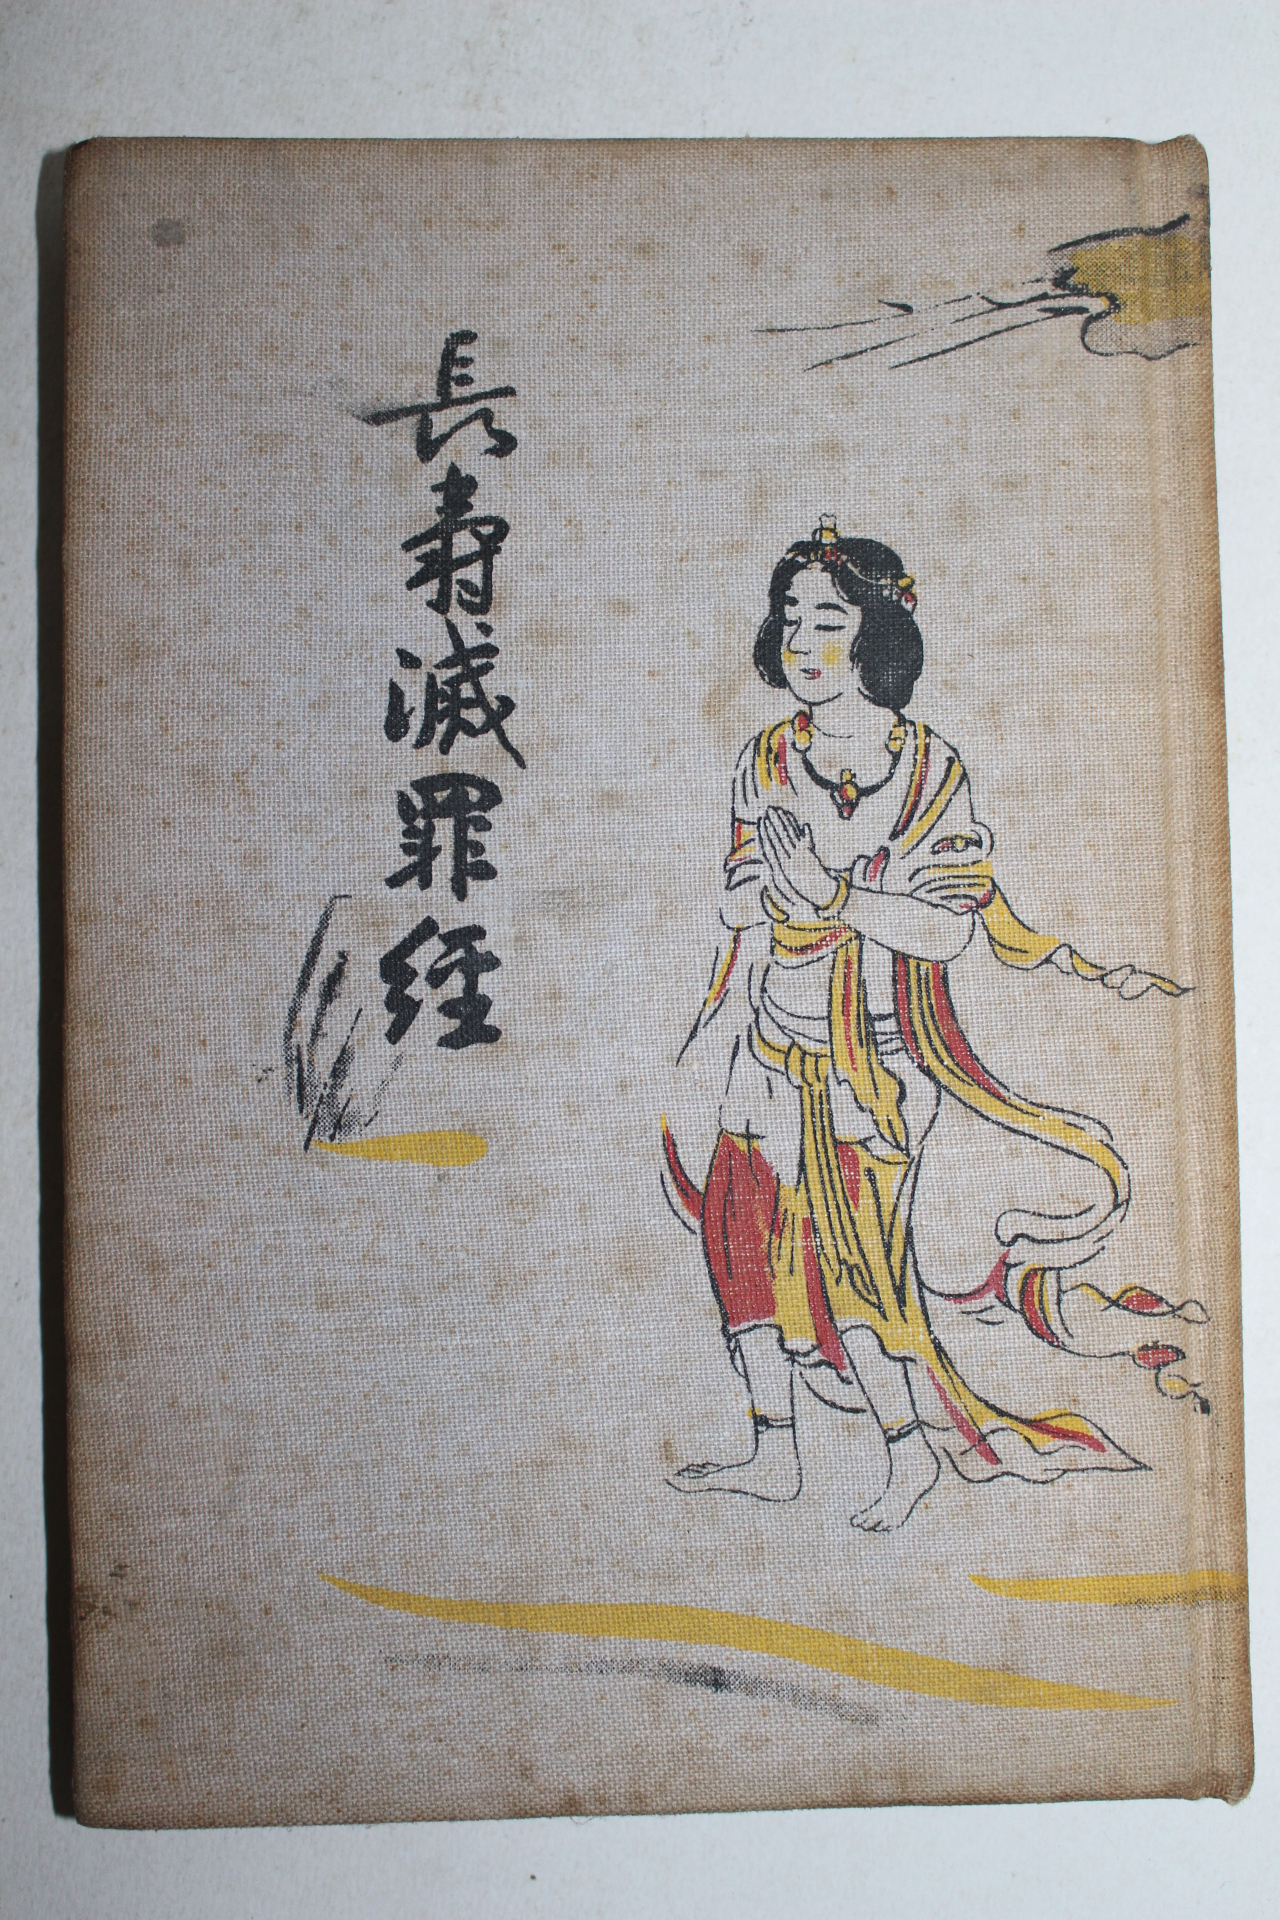 長壽滅罪經